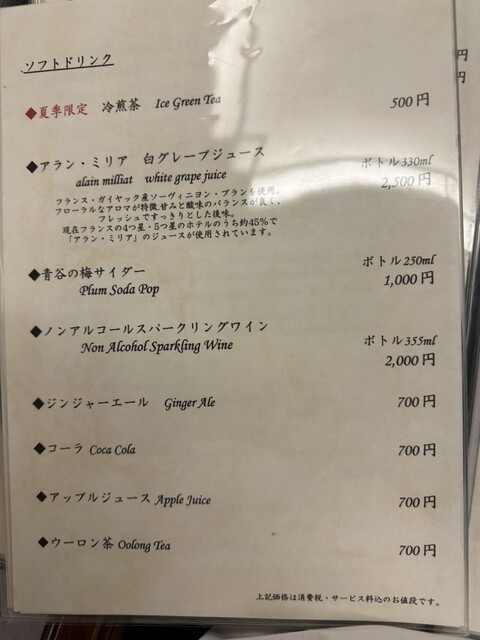 ソフトドリンク
◆夏季限定 冷煎茶 Ice Green Tea 500円
◆アラン・ミリア 白グレープジュース ボトル330ml
alain milliat white grape juice 2,500円
フランス・ガイヤック産ソーヴィニヨン・ブランを使用。
フローラルなアロマが特徴甘みと酸味のバランスが良く、
フレッシュですっきりとした後味。
現在フランスの4つ星・5つ星のホテルのうち約45%で
「アラン・ミリア」のジュースが使用されています。
◆青谷の梅サイダー ボトル250ml
Plum Soda Pop 1,000円
◆ノンアルコールスパークリングワイン ボトル355ml
Non Alcohol Sparkling Wine 2,000円
◆ジンジャーエール Ginger Ale 700円
◆コーラ Coca Cola 700円
◆アップルジュース Apple Juice 700円
◆ウーロン茶 Oolong Tea 700円
上記価格は消費税・サービス料込のお値段です。
円
円